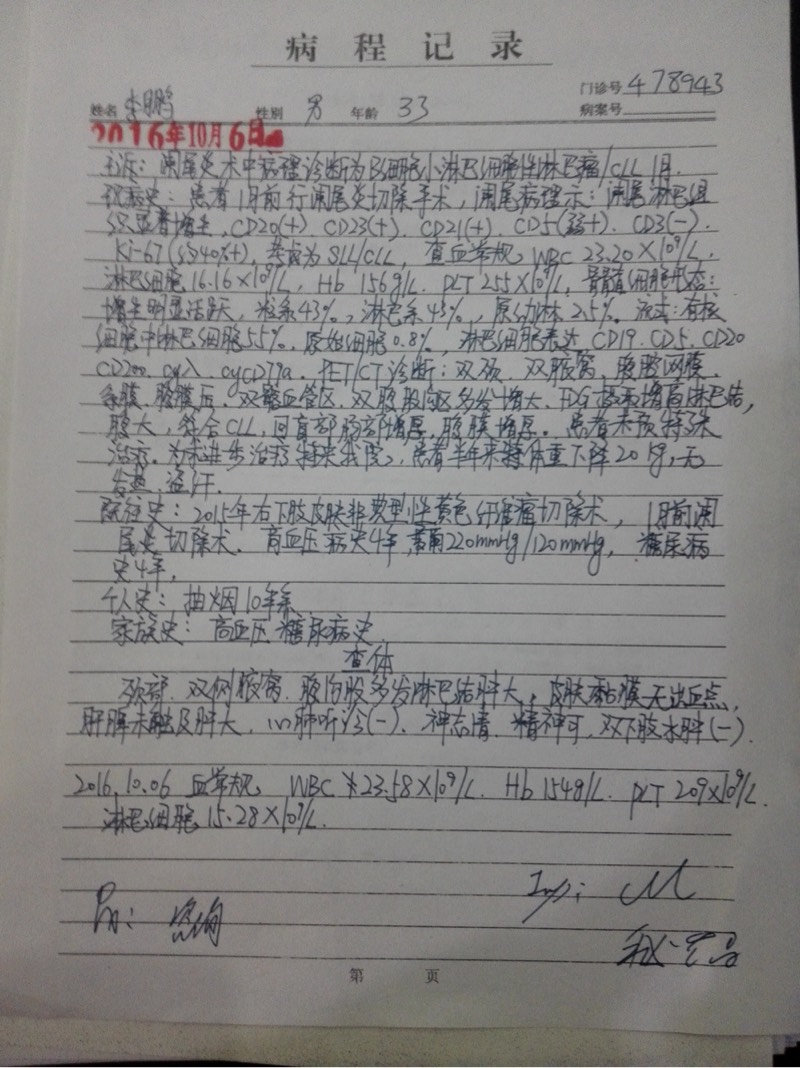 病程记录
门诊号 478943
姓名 李鹏 性别 男 年龄 33 病案号
2016年10月6日
主诉：阑尾炎术中病理诊断为B细胞小淋巴细胞性淋巴瘤/CLL 1月.
现病史：患者1月前行阑尾炎切除手术，阑尾病理示：阑尾淋巴组
织显著增生，CD20(+). CD23(+). CD21(+). CD5(弱+). CD3(-).
Ki-67(约40%+), 考虑为SLL/CLL, 查血常规，WBC 23.20×10⁹/L.
淋巴细胞16.16×10⁹/L, Hb 156g/L. PLT 255×10⁹/L, 骨髓细胞形态：
增生明显活跃，粒系43%.，淋巴系43%.，原幼淋2.5%. 流式：有核
细胞中淋巴细胞55%. 原始细胞0.8%, 淋巴细胞表达 CD19. CD5. CD20
CD200. cyλ. cyCD79a. PET/CT诊断：双颈. 双腋窝. 腹腔网膜.
系膜. 腹膜后. 双髂血管区. 双腹股沟区多发增大、FDG摄取增高淋巴结,
腹大，符合CLL, 回盲部肠部增厚，腹膜增厚。患者未予特殊
治疗. 为求进步治疗特来我院, 患者半年来体重下降20kg, 无
发热, 盗汗.
既往史：2015年右下肢皮肤非典型性黄色纤维瘤切除术，1月前阑
尾炎切除术. 高血压病史4年, 最高220mmHg/120mmHg, 糖尿病
史4年,
个人史：抽烟10年余
家族史：高血压 糖尿病史
查体
颈部. 双侧腋窝. 腹沟股多发淋巴结肿大，皮肤黏膜无出血点,
肝脾未触及肿大. 心肺听诊(-). 神志清. 精神可, 双下肢水肿(-).
2016.10.06 血常规 WBC 23.58×10⁹/L. Hb 154g/L. PLT 209×10⁹/L.
淋巴细胞15.28×10⁹/L.
第 页